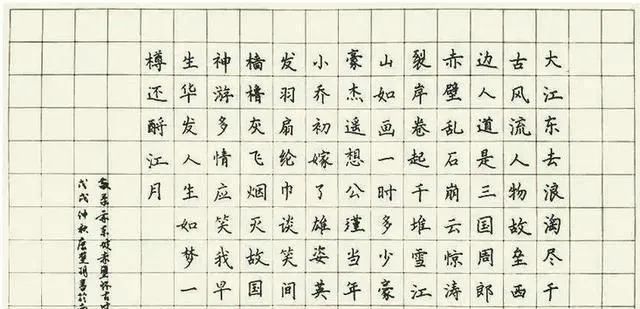 大江东去浪淘尽千
古风流人物故垒西
边人道是三国周郎
赤壁乱石崩云惊涛
裂岸卷起千堆雪江
山如画一时多少豪
豪杰遥想公瑾当年
小乔初嫁了雄姿英
发羽扇纶巾谈笑间
樯橹灰飞烟灭故国
神游多情应笑我早
生华发人生如梦一
樽还酹江月
东坡赤壁怀古
戊戌仲秋